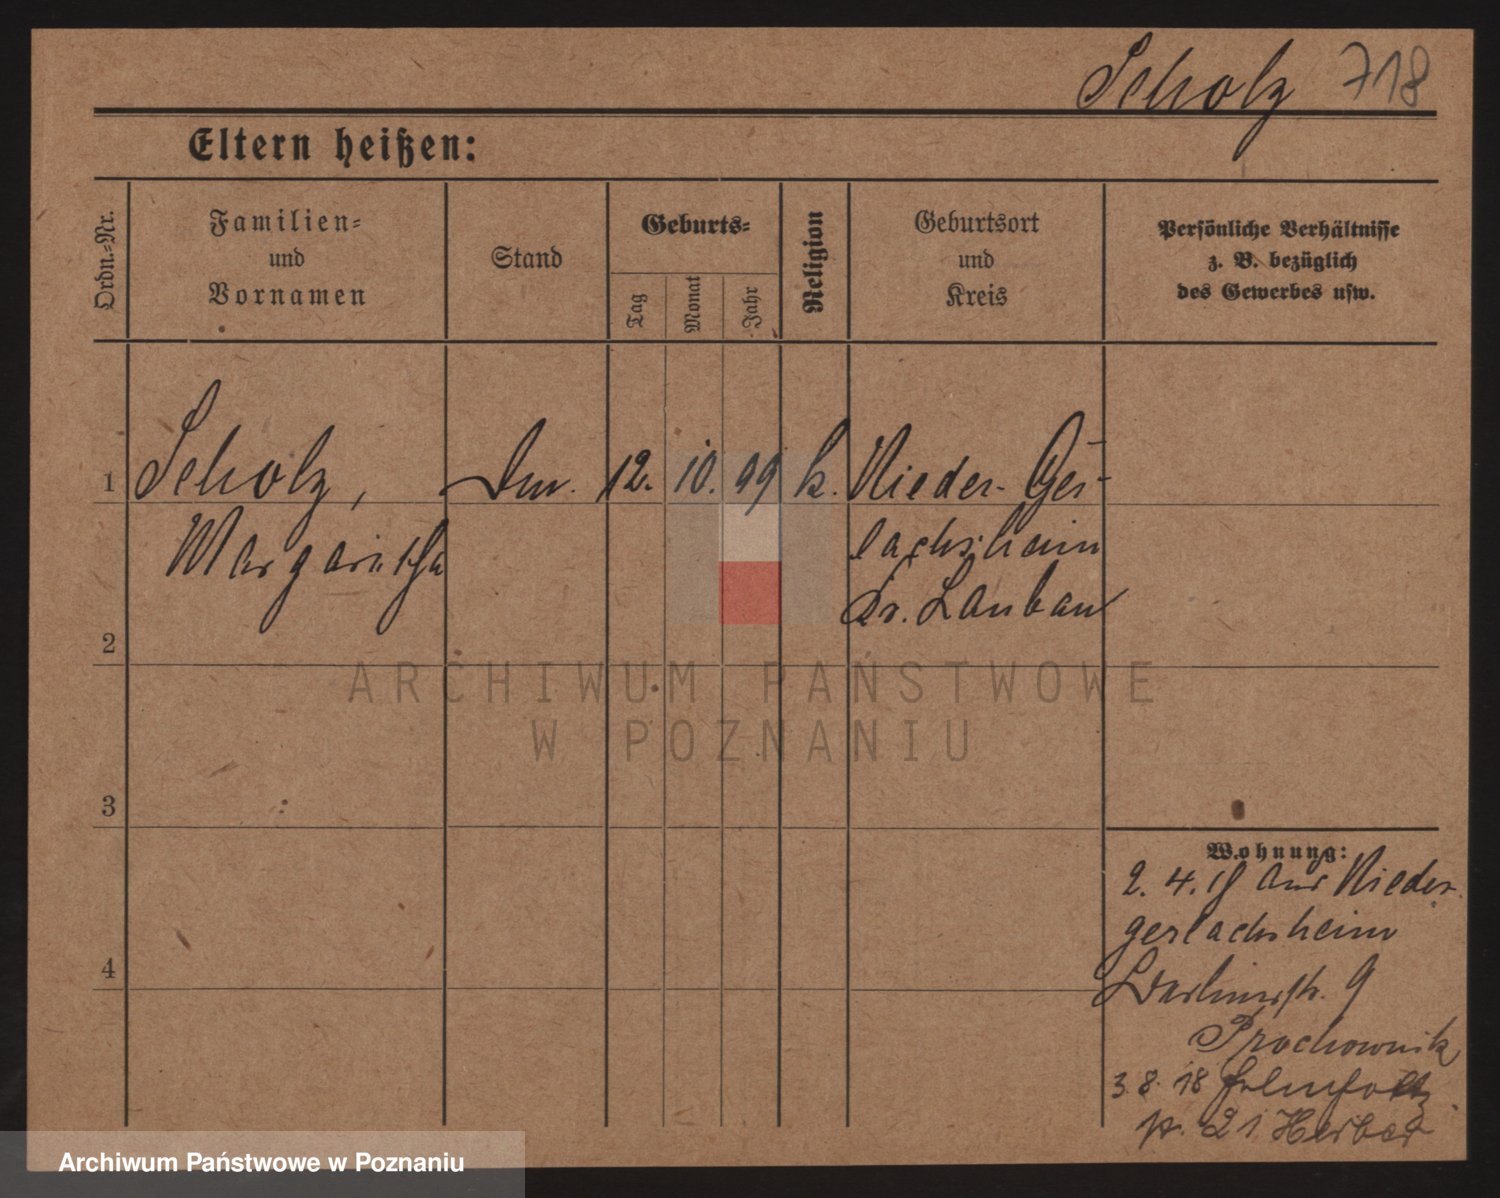 Scholz 718
Eltern heißen:
Ordn.-Nr.
Familien-
und
Vornamen
Stand
Geburts-
Tag
Monat
Jahr
Religion
Geburtsort
und
Kreis
Persönliche Verhältnisse
z. B. bezüglich
des Gewerbes usw.
1 Scholz, 12. 10. 99 k. Nieder-Ger-
Margaretha lachsheim
Kr. Lauban
2
3
4
Wohnung:
2. 4. 18 aus Nieder-
gerlachsheim
Berlinerstr. 9
Prochownik
3. 8. 18
21 Herber
ARCHIWUM PAŃSTWOWE
W POZNANIU
Archiwum Państwowe w Poznaniu